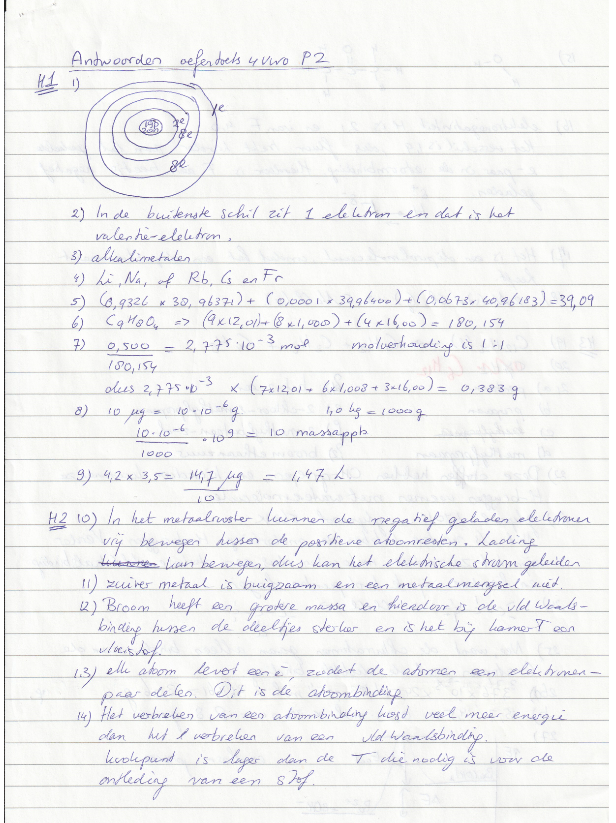 Antwoorden oefentoets 4 vwo P2
H1 1)
1e
2e
8e
8e
2) In de buitenste schil zit 1 elektron en dat is het
valentie-elektron.
3) alkalimetalen
4) Li, Na, of Rb, Cs en Fr
5) (0,9326 x 38,96371) + (0,0001 x 39,96400) + (0,0673 x 40,96183) = 39,09
6) C9H8O4 => (9x12,01)+(8x1,008) + (4x16,00) = 180,154
7) 0,500 = 2,775·10^-3 mol molverhouding is 1:1
180,154
dus 2,775·10^-3 x (7x12,01 + 6x1,008 + 3x16,00) = 0,383 g
8) 10 µg = 10·10^-6 g 1,0 kg = 1000 g
10·10^-6 · 10^9 = 10 massappb
1000
9) 4,2 x 3,5 = 14,7 µg = 1,47 L
10
H2 10) In het metaalrooster kunnen de negatief geladen elektronen
vrij bewegen tussen de positieve atoomresten. Lading
kan bewegen, dus kan het elektrische stroom geleiden
11) zuiver metaal is buigzaam en een metaalmengsel niet.
12) Broom heeft een grotere massa en hierdoor is de vld Waals-
binding tussen de deeltjes sterker en is het bij kamer T een
vloeistof.
13) elk atoom levert een e, zodat de atomen een elektronen-
paar delen. Dit is de atoombinding.
14) Het verbreken van een atoombinding kost veel meer energie
dan het verbreken van een vld Waalsbinding.
kookpunt is lager dan de T die nodig is voor de
ontleding van een stof.